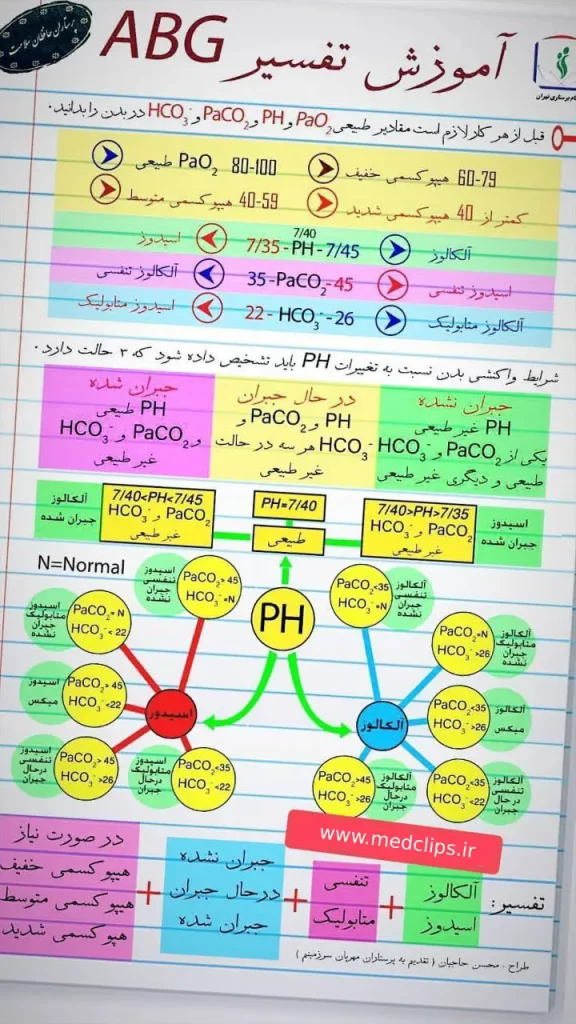 پرستاران حافظان سلامت
آموزش تفسیر ABG
نظام پرستاری تهران
قبل از هر کار لازم است مقادیر طبیعی PaO2 و PH و PaCO2 و HCO3- در بدن را بدانید.
60-79 هیپوکسمی خفیف
80-100 PaO2 طبیعی
کمتر از 40 هیپوکسمی شدید
40-59 هیپوکسمی متوسط
7/40
آلکالوز 7/35 - PH - 7/45 اسیدوز
اسیدوز تنفسی 35-PaCO2-45 آلکالوز تنفسی
آلکالوز متابولیک 22- HCO3- -26 اسیدوز متابولیک
شرایط واکنشی بدن نسبت به تغییرات PH باید تشخیص داده شود که ۳ حالت دارد.
جبران نشده
PH غیر طبیعی
یکی از PaCO2 و HCO3-
طبیعی و دیگری غیر طبیعی
در حال جبران
PH و PaCO2 و
HCO3- هر سه در حالت
غیر طبیعی
جبران شده
PH طبیعی
و PaCO2 و HCO3-
غیر طبیعی
اسیدوز
جبران شده
7/40>PH>7/35
PaCO2 و HCO3-
غیر طبیعی
PH=7/40
طبیعی
7/40<PH<7/45
PaCO2 و HCO3-
غیر طبیعی
آلکالوز
جبران شده
N=Normal
PH
آلکالوز
PaCO2<35
HCO3- =N
آلکالوز
تنفسی
جبران
نشده
PaCO2=N
HCO3- >26
آلکالوز
متابولیک
جبران
نشده
PaCO2<35
HCO3- >26
آلکالوز
میکس
PaCO2<35
HCO3- <22
آلکالوز
تنفسی
درحال
جبران
PaCO2>45
HCO3- >26
آلکالوز
متابولیک
درحال
جبران
اسیدوز
PaCO2> 45
HCO3- =N
اسیدوز
تنفسی
جبران
نشده
PaCO2= N
HCO3- < 22
اسیدوز
متابولیک
جبران
نشده
PaCO2> 45
HCO3- <22
اسیدوز
میکس
PaCO2> 45
HCO3- >26
اسیدوز
تنفسی
درحال
جبران
PaCO2<35
HCO3- <22
اسیدوز
متابولیک
درحال
جبران
www.medclips.ir
تفسیر:
آلکالوز
اسیدوز
+
تنفسی
متابولیک
+
جبران نشده
درحال جبران
جبران شده
+
در صورت نیاز
هیپوکسمی خفیف
هیپوکسمی متوسط
هپوکسمی شدید
طراح : محسن حاجیان ( تقدیم به پرستاران مهربان سرزمینم )